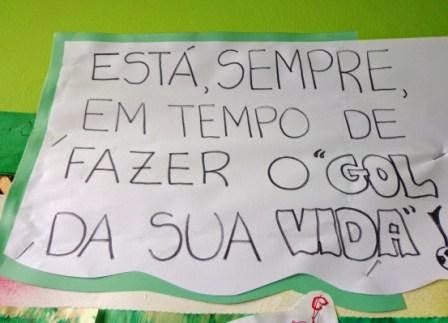 ESTÁ, SEMPRE,
EM TEMPO DE
FAZER O "GOL
DA SUA VIDA"!